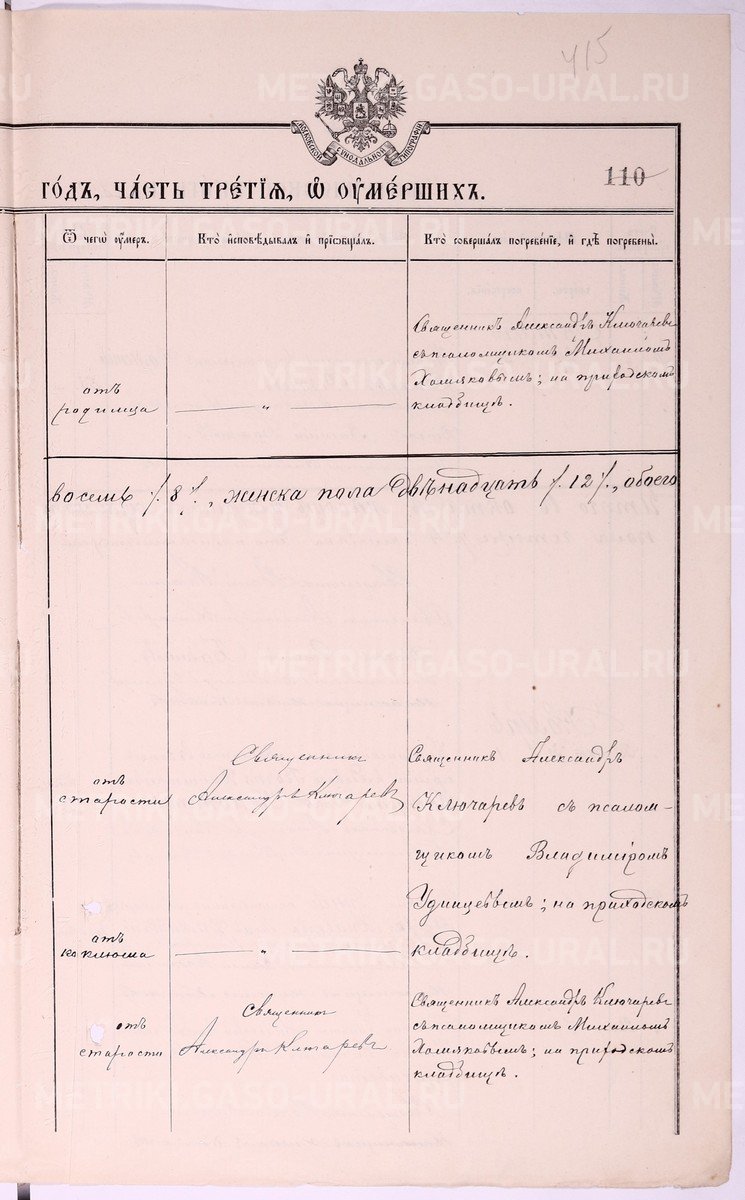 415
МОСКОВСКОЙ СѴНОДАЛЬНОЙ ТИПОГРАФІИ
110
ГО́ДЪ, ЧА́СТЬ ТРЕ́ТІЯ, Ѽ ОУМЕ́РШИХЪ.
Ѿ чегѡ̀ оу҆́меръ.
Кто̀ и҆сповѣ́дывалъ и҆ прїѡбща́лъ.
Кто̀ соверша́лъ погребе́нїе, и҆ гдѣ̀ погребены̀.
отъ
родимца
— „ —
Священникъ Александръ Ключаревъ
съ псаломщикомъ Михаиломъ
Хомяковымъ; на приходскомъ
кладбищѣ.
восемь /. 8 /., женска пола двѣнадцать /. 12 /., обоего
отъ
старости
Священникъ
Александръ Ключаревъ
Священникъ Александръ
Ключаревъ съ псалом-
щикомъ Владиміромъ
Удинцевымъ; на приходскомъ
кладбищѣ.
отъ
коклюша
— „ —
отъ
старости
Священникъ
Александръ Ключаревъ
Священникъ Александръ Ключаревъ
съ псаломщикомъ Михаиломъ
Хомяковымъ; на приходскомъ
кладбищѣ.
METRIKI.GASO-URAL.RU